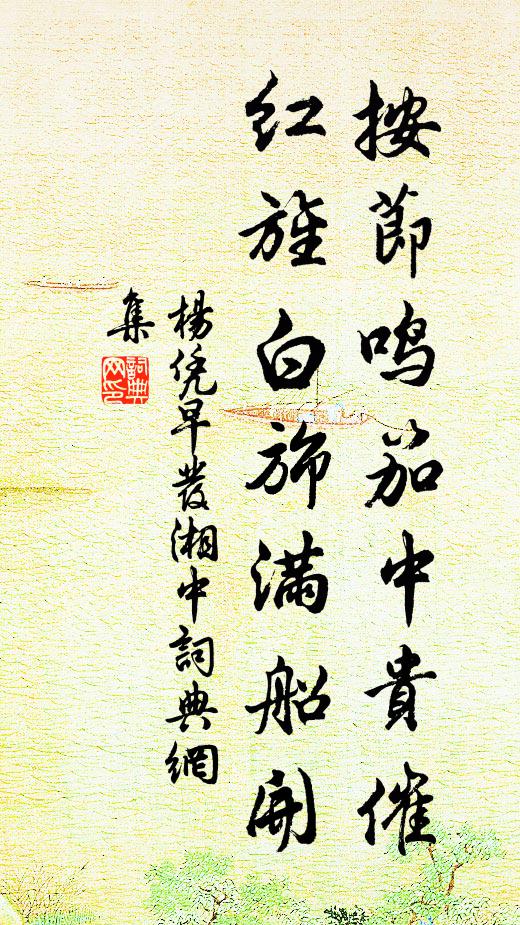 按節鳴笳中貴催
紅旌白旆滿船開
楊凭早發湘中詞典網
集
詞典網印